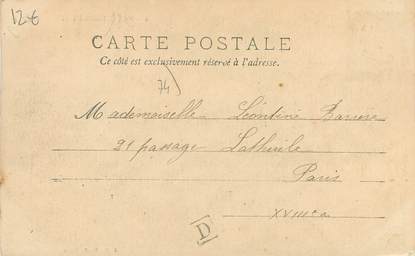 12€
CARTE POSTALE
Ce côté est exclusivement réservé à l'adresse.
74
Mademoiselle Léontine
21 passage
Paris
XVIII e a
D